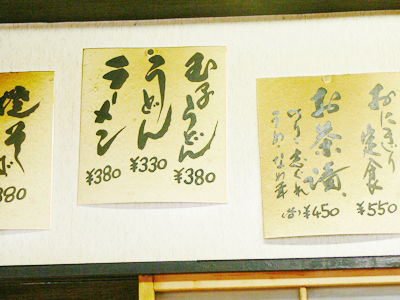 焼そば
380
玉子うどん
¥380
うどん
¥330
ラーメン
¥380
おにぎり定食
¥550
お茶漬
¥450